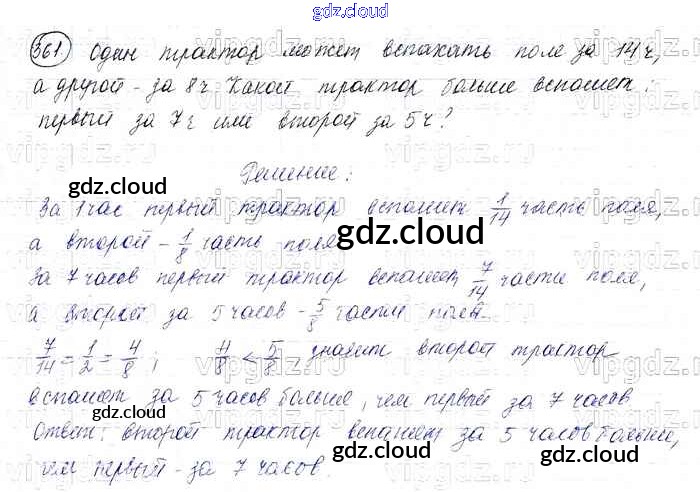 gdz.cloud
361. Один трактор может вспахать поле за 14 ч,
а другой - за 8 ч. Какой трактор больше вспашет:
первый за 7 ч или второй за 5 ч?
Решение:
gdz.cloud
За 1 час первый трактор вспашет 1/14 часть поля,
а второй - 1/8 часть поля.
gdz.cloud
За 7 часов первый трактор вспашет 7/14 части поля,
а второй за 5 часов - 5/8 части поля.
7/14 = 1/2 = 4/8 ; 4/8 < 5/8 , значит второй трактор
вспашет за 5 часов больше, чем первый за 7 часов
gdz.cloud
Ответ: второй трактор вспашет за 5 часов больше,
чем первый - за 7 часов.
gdz.cloud